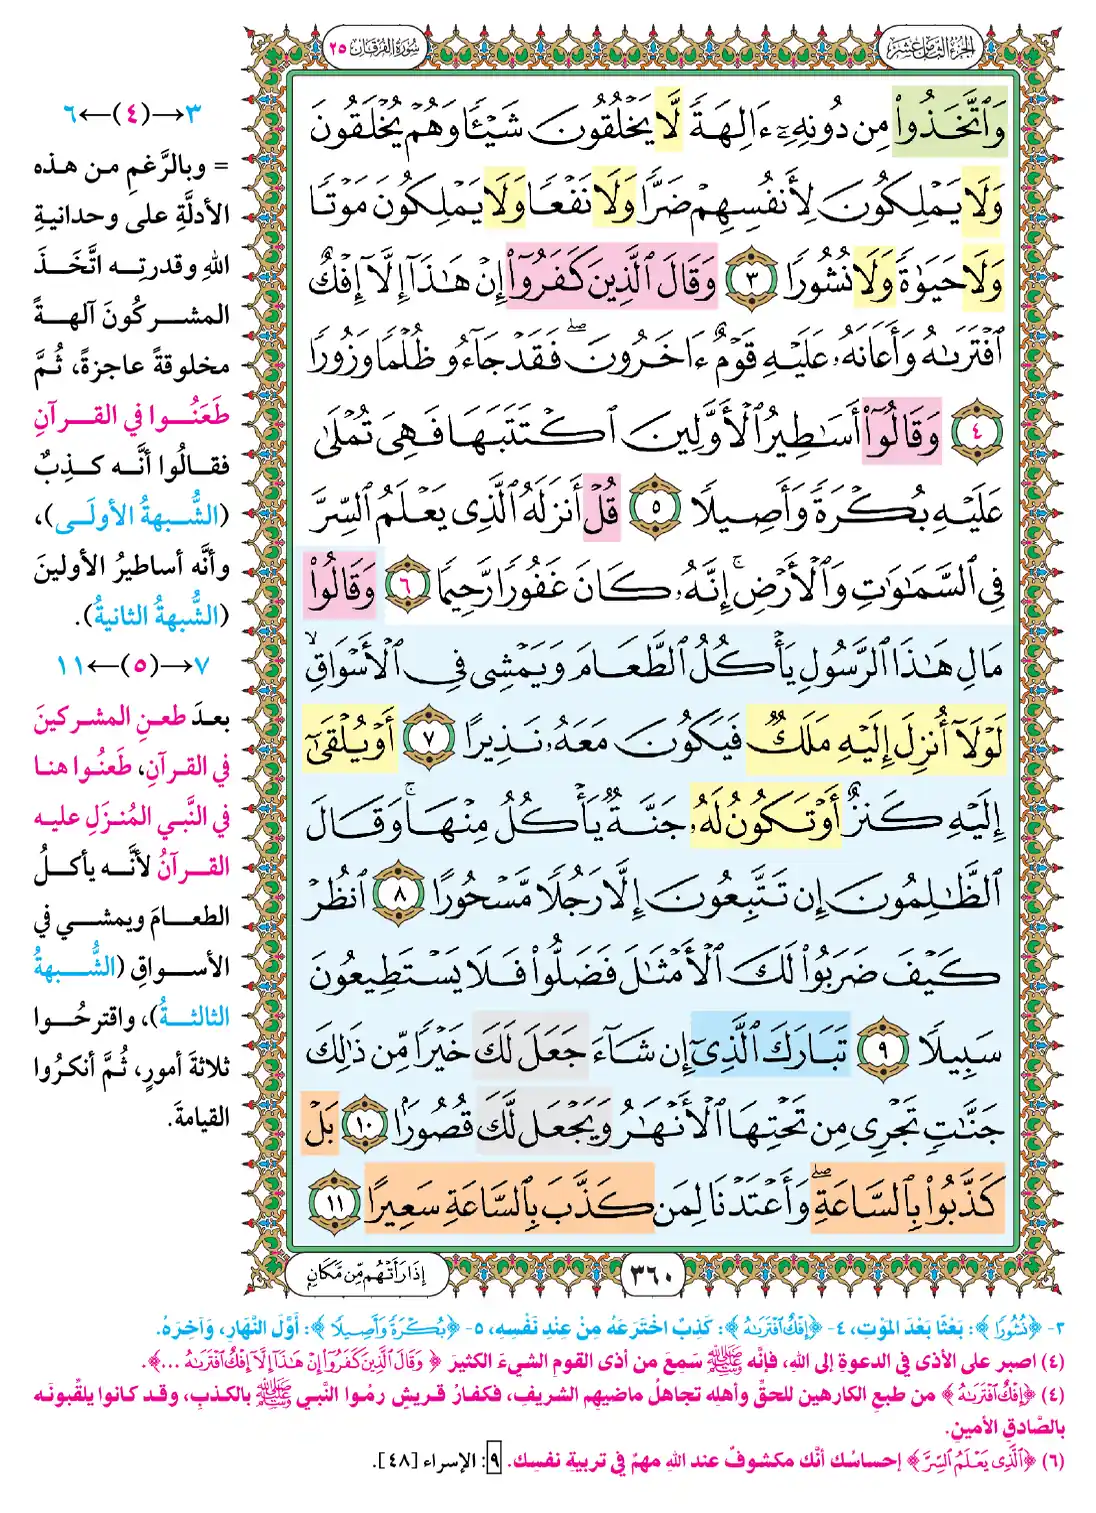 الجزء الثامن عشر
سورة الفرقان ٢٥
وَٱتَّخَذُوا۟ مِن دُونِهِۦٓ ءَالِهَةً لَّا يَخْلُقُونَ شَيْـًٔا وَهُمْ يُخْلَقُونَ
وَلَا يَمْلِكُونَ لِأَنفُسِهِمْ ضَرًّا وَلَا نَفْعًا وَلَا يَمْلِكُونَ مَوْتًا
وَلَا حَيَوٰةً وَلَا نُشُورًا ٣ وَقَالَ ٱلَّذِينَ كَفَرُوٓا۟ إِنْ هَـٰذَآ إِلَّآ إِفْكٌ
ٱفْتَرَىٰهُ وَأَعَانَهُۥ عَلَيْهِ قَوْمٌ ءَاخَرُونَ ۖ فَقَدْ جَآءُو ظُلْمًا وَزُورًا
٤ وَقَالُوٓا۟ أَسَـٰطِيرُ ٱلْأَوَّلِينَ ٱكْتَتَبَهَا فَهِىَ تُمْلَىٰ
عَلَيْهِ بُكْرَةً وَأَصِيلًا ٥ قُلْ أَنزَلَهُ ٱلَّذِى يَعْلَمُ ٱلسِّرَّ
فِى ٱلسَّمَـٰوَٰتِ وَٱلْأَرْضِ ۚ إِنَّهُۥ كَانَ غَفُورًا رَّحِيمًا ٦ وَقَالُوا۟
مَالِ هَـٰذَا ٱلرَّسُولِ يَأْكُلُ ٱلطَّعَامَ وَيَمْشِى فِى ٱلْأَسْوَاقِ ۙ
لَوْلَآ أُنزِلَ إِلَيْهِ مَلَكٌ فَيَكُونَ مَعَهُۥ نَذِيرًا ٧ أَوْ يُلْقَىٰٓ
إِلَيْهِ كَنزٌ أَوْ تَكُونُ لَهُۥ جَنَّةٌ يَأْكُلُ مِنْهَا ۚ وَقَالَ
ٱلظَّـٰلِمُونَ إِن تَتَّبِعُونَ إِلَّا رَجُلًا مَّسْحُورًا ٨ ٱنظُرْ
كَيْفَ ضَرَبُوا۟ لَكَ ٱلْأَمْثَـٰلَ فَضَلُّوا۟ فَلَا يَسْتَطِيعُونَ
سَبِيلًا ٩ تَبَارَكَ ٱلَّذِىٓ إِن شَآءَ جَعَلَ لَكَ خَيْرًا مِّن ذَٰلِكَ
جَنَّـٰتٍ تَجْرِى مِن تَحْتِهَا ٱلْأَنْهَـٰرُ وَيَجْعَل لَّكَ قُصُورًۢا ١٠ بَلْ
كَذَّبُوا۟ بِٱلسَّاعَةِ ۖ وَأَعْتَدْنَا لِمَن كَذَّبَ بِٱلسَّاعَةِ سَعِيرًا ١١
إِذَا رَأَتْهُم مِّن مَّكَانٍ
٣٦٠
٣→(٤)←٦
= وبالرَّغمِ من هذه
الأدلَّةِ على وحدانيةِ
اللهِ وقدرتِه اتَّخَذَ
المشركُونَ آلهةً
مخلوقةً عاجزةً، ثُمَّ
طَعَنُوا في القرآنِ
فقالُوا أنَّه كذِبٌ
(الشُّبهةُ الأولَى)،
وأنَّه أساطيرُ الأولينَ
(الشُّبهةُ الثانيةُ).
٧→(٥)←١١
بعدَ طعنِ المشركينَ
في القرآنِ، طَعنُوا هنا
في النَّبي المُنزَلِ عليه
القرآنُ لأنَّه يأكلُ
الطعامَ ويمشي في
الأسواقِ (الشُّبهةُ
الثالثةُ)، واقترحُوا
ثلاثةَ أمورٍ، ثُمَّ أنكرُوا
القيامةَ.
٣- ﴿نُشُورًا﴾: بَعْثًا بَعْدَ المَوْتِ، ٤- ﴿إِفْكٌ ٱفْتَرَىٰهُ﴾: كَذِبٌ اخْتَرَعَهُ مِنْ عِنْدِ نَفْسِهِ، ٥- ﴿بُكْرَةً وَأَصِيلًا﴾: أَوَّلَ النَّهَارِ، وَآخِرَهُ.
(٤) اصبر على الأذى في الدعوةِ إلى اللهِ، فإنَّه ﷺ سَمِعَ من أذى القومِ الشيءَ الكثيرَ ﴿وَقَالَ ٱلَّذِينَ كَفَرُوٓا۟ إِنْ هَـٰذَآ إِلَّآ إِفْكٌ ٱفْتَرَىٰهُ ...﴾.
(٤) ﴿إِفْكٌ ٱفْتَرَىٰهُ﴾ من طبعِ الكارهين للحقِّ وأهلِه تجاهلُ ماضيهم الشريفِ، فكفارُ قريشٍ رمُوا النَّبي ﷺ بالكذبِ، وقد كانوا يلقِّبونَه
بالصَّادقِ الأمينِ.
(٦) ﴿ٱلَّذِى يَعْلَمُ ٱلسِّرَّ﴾ إحساسُك أنَّك مكشوفٌ عند اللهِ مهمٌ في تربيةِ نفسِك. ٩: الإسراء [٤٨].